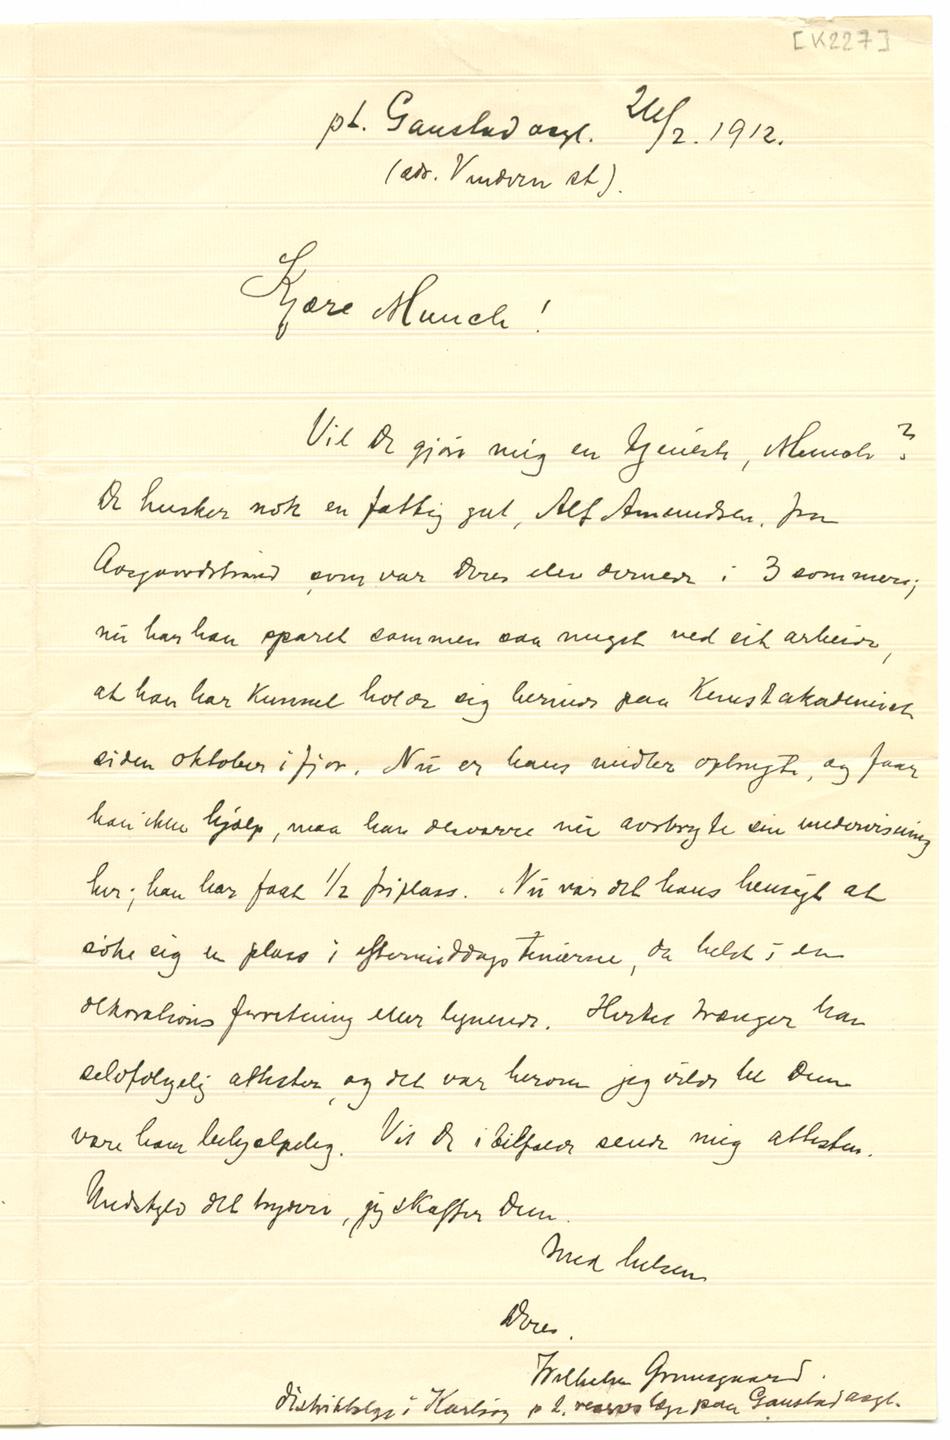 [K227]
pt. Gaustad asyl. 24/2. 1912.
(adr. Vinderen st).
Kjære Munch!
Vil De gjøre mig en tjeneste, Munch?
De husker nok en fattig gut, Alf Amundsen, fra
Aasgaardstrand, som var Deres elev dernede i 3 sommere;
nu har han sparet sammen saa meget ved sit arbeide,
at han har kunnet holde sig herinde paa Kunstakademiet
siden oktober i fjor. Nu er hans midler opbrugte, og faar
han ikke hjælp, maa han desværre nu avbryte sin undervisning
her; han har faat 1/2 friplass. Nu var det hans hensigt at
søke sig en plass i eftermiddagstimerne, da helst i en
dekorations forretning eller lignende. Hertil trænger han
selvfølgelig attester, og det var herom jeg vilde be Dem
være ham behjælpelig. Vil De i tilfælde sende mig attesten.
Undskyld det bryderi, jeg skaffer Dem.
Med hilsen
Deres.
Wilhelm Grimsgaard.
distriktslæge i Karlsøy p t. reservelæge paa Gaustad asyl.